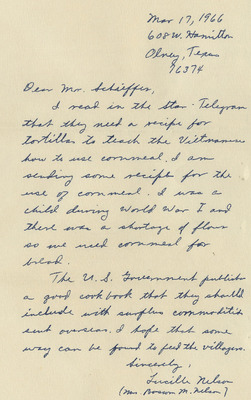 Mar 17, 1966
608 W. Hamilton
Olney, Texas
76374
Dear Mr. Schieffer,
I read in the Star-Telegram
that they need a recipe for
tortillas to teach the Vietnamese
how to use cornmeal. I am
sending some recipes for the
use of cornmeal. I was a
child during World War I and
there was a shortage of flour
so we used cornmeal for
bread.
The U.S. Government publish
a good cookbook that they should
include with surplus commodities
sent overseas. I hope that some
way can be found to feed the villagers.
Sincerely,
Lucille Nelson
(Mrs. M. Nelson)